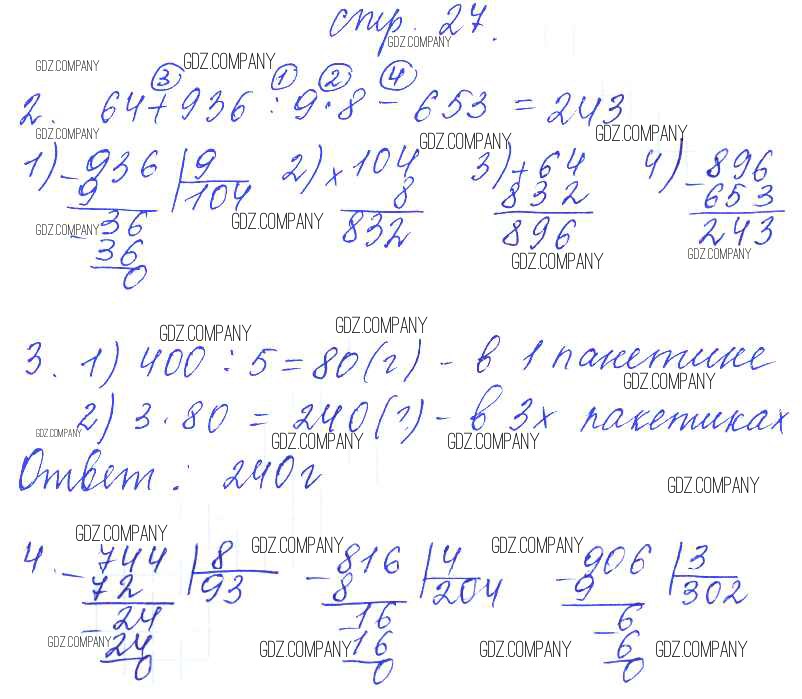 стр. 27.
GDZ.COMPANY
GDZ.COMPANY GDZ.COMPANY
3 1 2 4
2. 64+936:9·8-653=243
GDZ.COMPANY GDZ.COMPANY GDZ.COMPANY
1) -936 |9 2) ×104 3) +64 4) -896
9 104 8 832 653
GDZ.COMPANY -36 GDZ.COMPANY 832 896 243
36 GDZ.COMPANY GDZ.COMPANY
0
GDZ.COMPANY GDZ.COMPANY
3. 1) 400:5=80(г) - в 1 пакетике
GDZ.COMPANY
2) 3·80=240(г) - в 3х пакетиках
GDZ.COMPANY GDZ.COMPANY GDZ.COMPANY
Ответ: 240г
GDZ.COMPANY
GDZ.COMPANY GDZ.COMPANY GDZ.COMPANY
4. -744 |8 -816 |4 -906 |3
72 93 8 204 9 302
-24 -16 -6
GDZ.COMPANY 24 GDZ.COMPANY 16 GDZ.COMPANY 6 GDZ.COMPANY
0 0 0